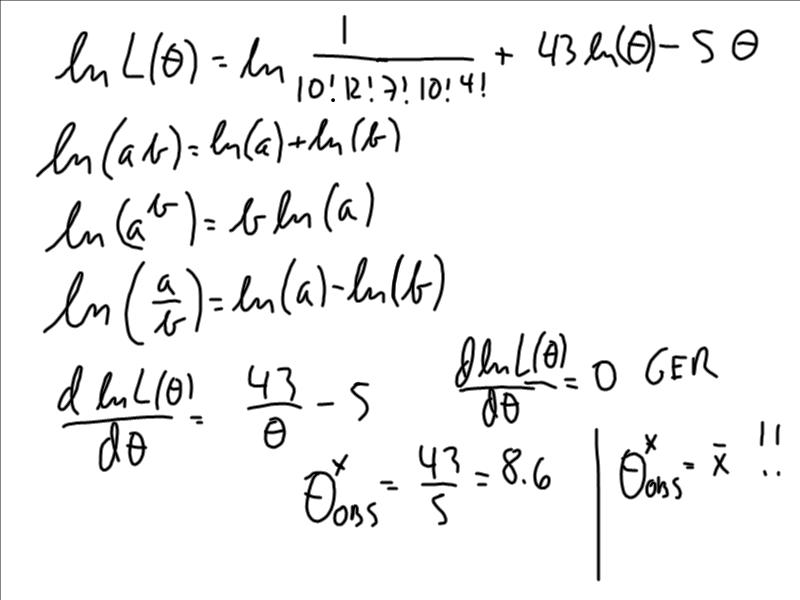 ln L(θ) = ln 1/(10! 12! 7! 10! 4!) + 43 ln(θ) - 5 θ
ln(ab) = ln(a) + ln(b)
ln(a^b) = b ln(a)
ln(a/b) = ln(a) - ln(b)
d ln L(θ)/dθ = 43/θ - 5    d ln L(θ)/dθ = 0 GER
θ*OBS = 43/5 = 8.6 | θ*OBS = x̄ !!